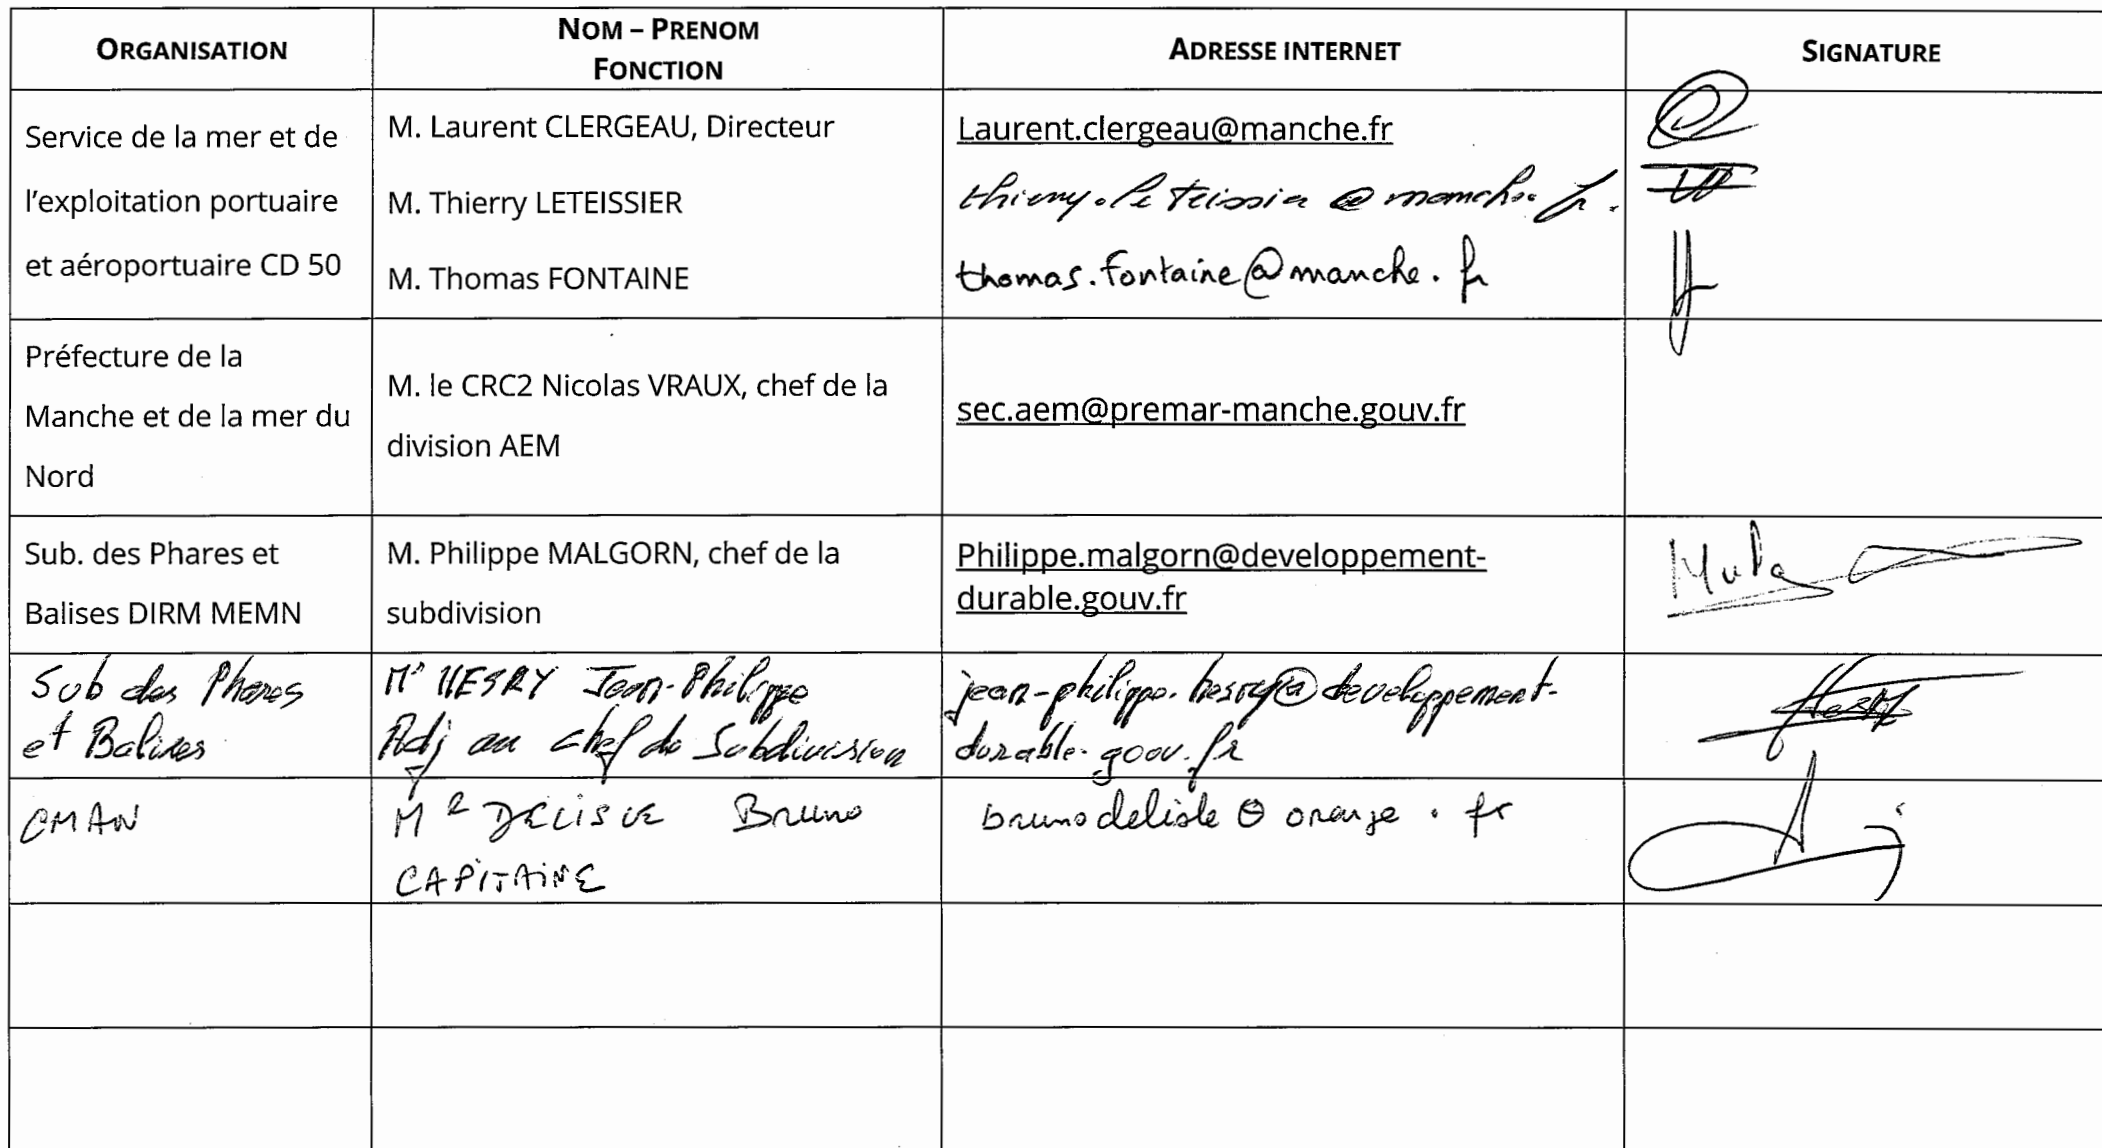 ORGANISATION
NOM – PRENOM
FONCTION
ADRESSE INTERNET
SIGNATURE
Service de la mer et de
l'exploitation portuaire
et aéroportuaire CD 50
M. Laurent CLERGEAU, Directeur
M. Thierry LETEISSIER
M. Thomas FONTAINE
Laurent.clergeau@manche.fr
thierry.leteissier@manche.fr.
thomas.fontaine@manche.fr
Préfecture de la
Manche et de la mer du
Nord
M. le CRC2 Nicolas VRAUX, chef de la
division AEM
sec.aem@premar-manche.gouv.fr
Sub. des Phares et
Balises DIRM MEMN
M. Philippe MALGORN, chef de la
subdivision
Philippe.malgorn@developpement-
durable.gouv.fr
Sub des Phares
et Balises
Mr HESRY Jean-Philippe
Adj au chef de Subdivision
jean-philippe.hesry@developpement-
durable.gouv.fr
Hesry
CMAN
Mr DELISLE Bruno
CAPITAINE
brunodelisle@orange.fr